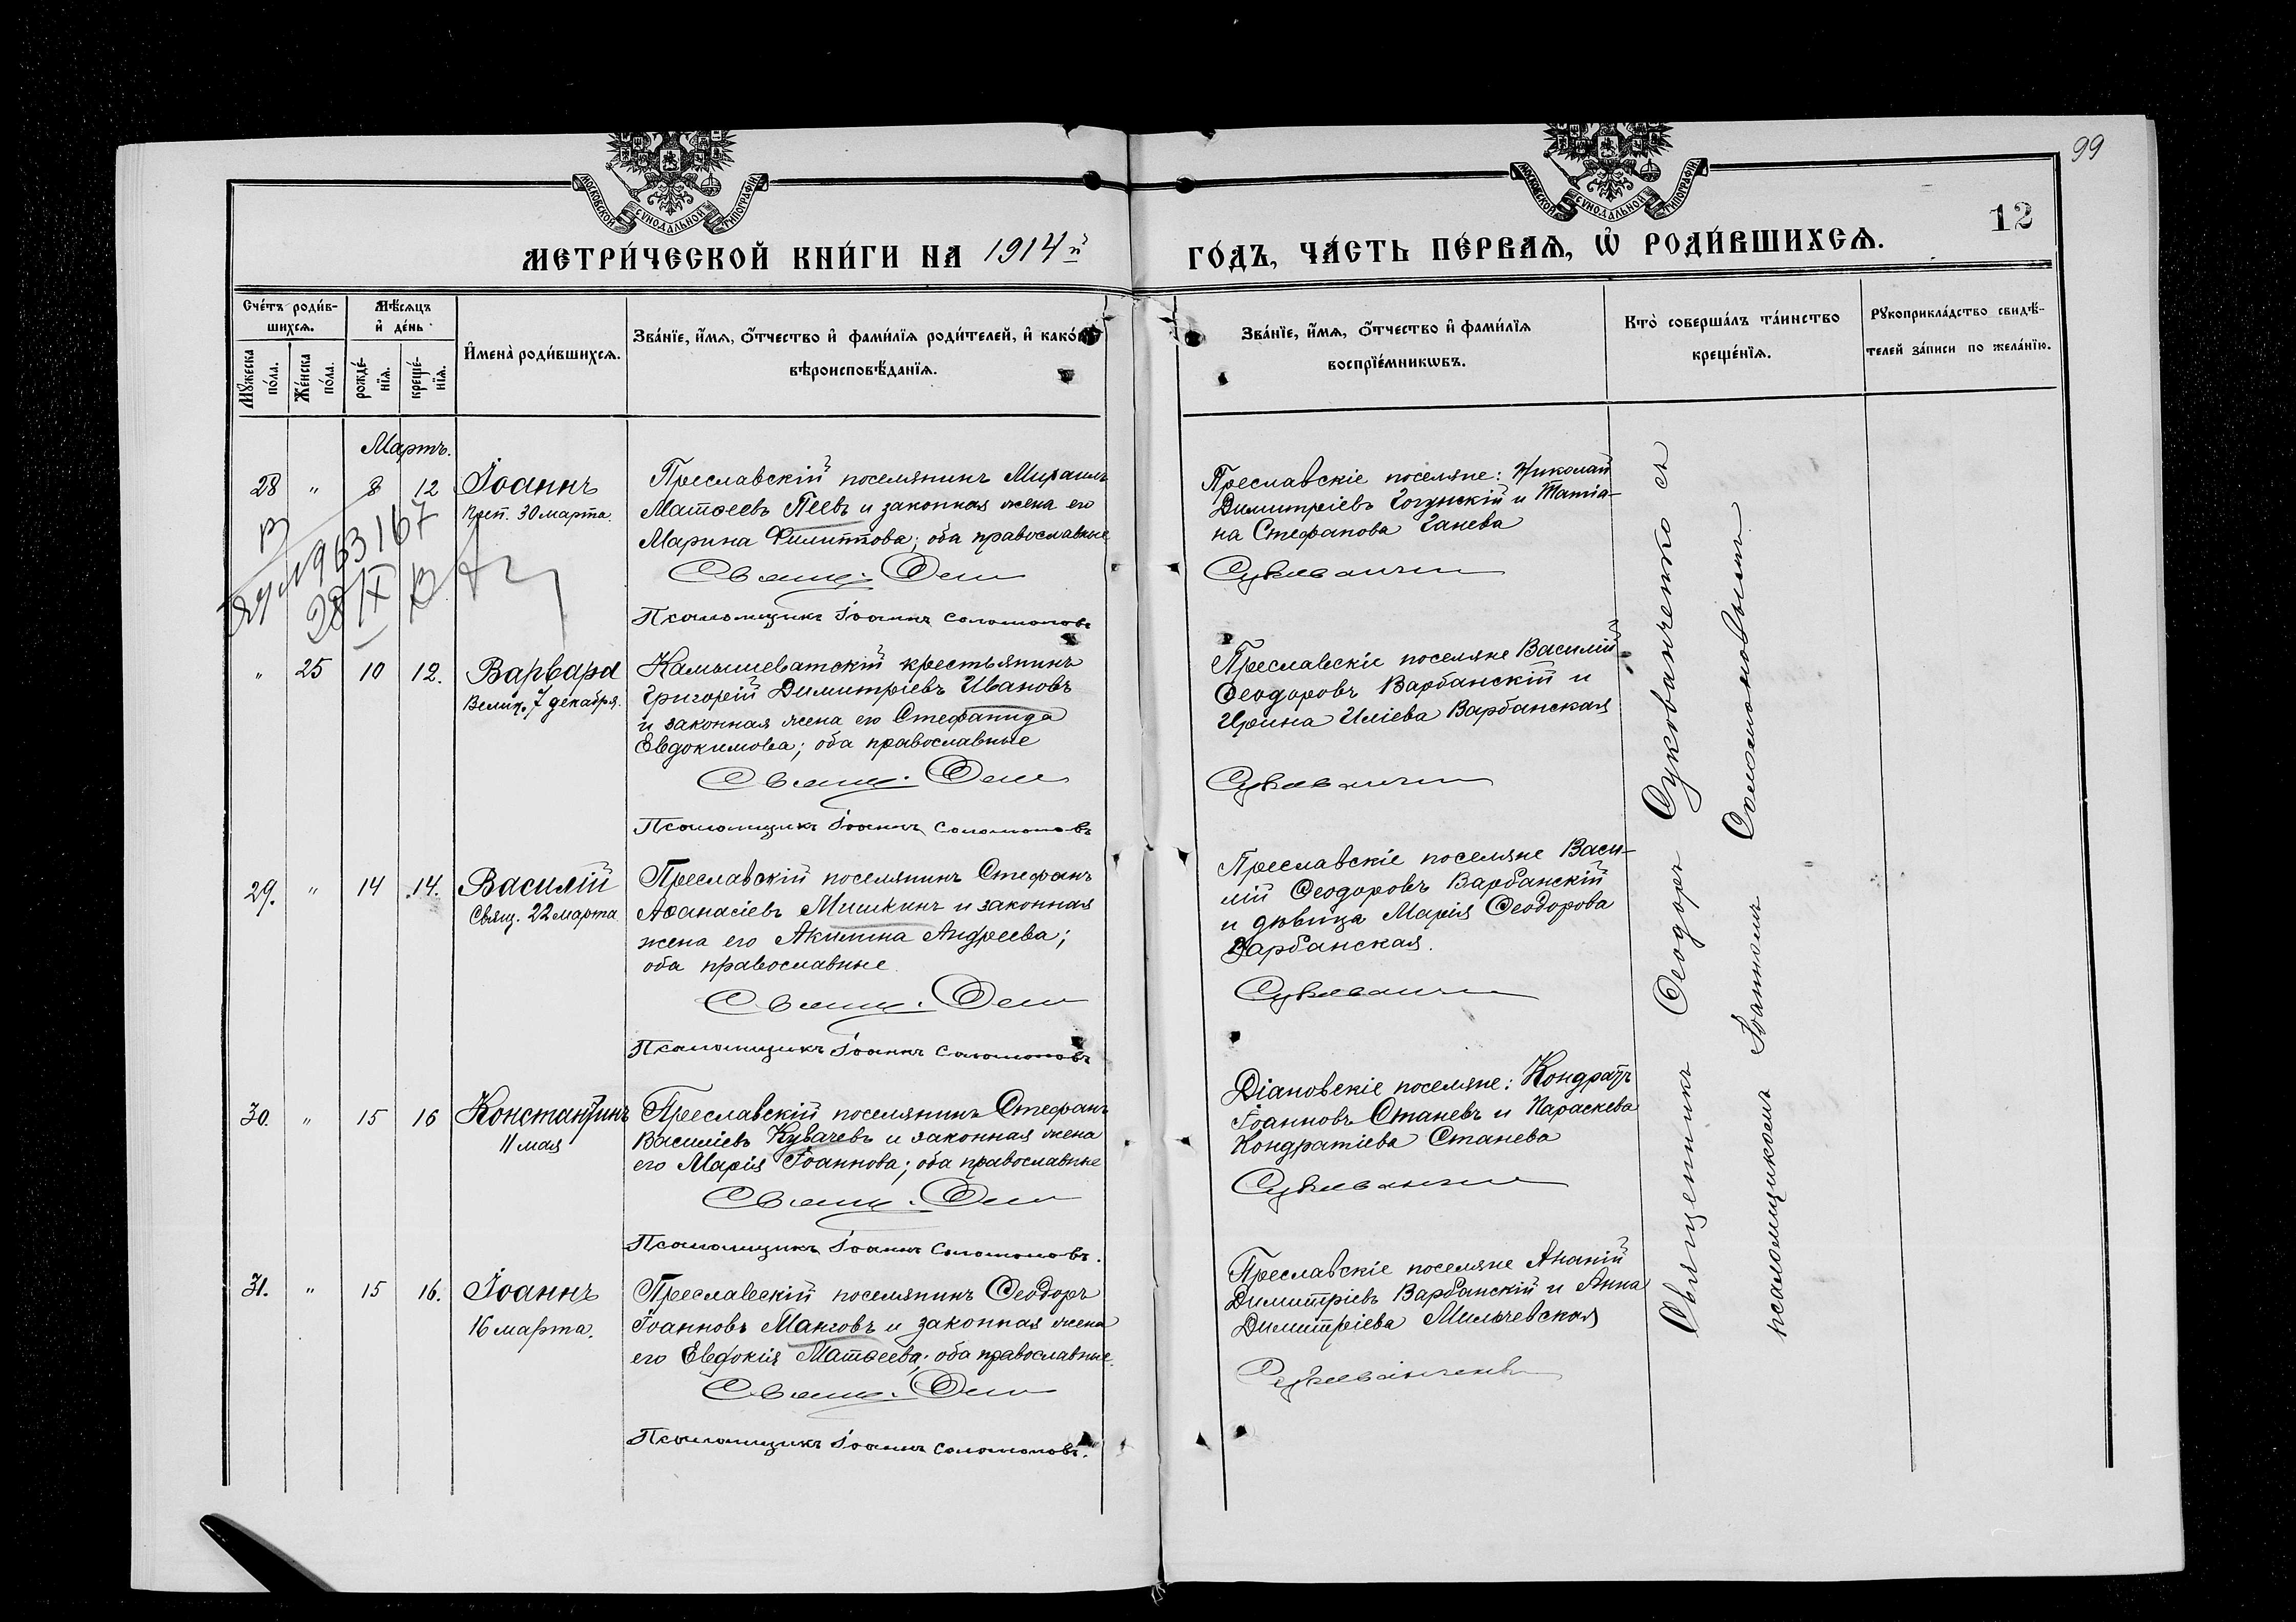 99
12
МОСКОВСКОЙ СѴНОДАЛЬНОЙ ТИПОГРАФІИ
МОСКОВСКОЙ СѴНОДАЛЬНОЙ ТИПОГРАФІИ
МЕТРИ́ЧЕСКОЙ КНИ́ГИ НА 1914й
ГО́ДЪ, ЧА́СТЬ ПЕ́РВАѦ, Ѡ҆ РОДИ́ВШИХСѦ.
Сче́тъ роди́в-
шихсѧ.
Мꙋ́жеска по́ла.
Же́нска по́ла.
Мѣ́сѧцъ
и҆ де́нь
рожде́-
нїѧ.
креще́-
нїѧ.
И҆мена̀ роди́вшихсѧ.
Зва́нїе, и҆́мѧ, ѻ҆́тчество и҆ фами́лїѧ роди́телей, и҆ како́гѡ
вѣроисповѣ́данїѧ.
Зва́нїе, и҆́мѧ, ѻ҆́тчество и҆ фами́лїѧ
воспрїе́мникѡвъ.
Кто̀ соверша́лъ та́инство
креще́нїѧ.
Рꙋкоприкла́дство свидѣ́-
телей за́писи по жела́нїю.
Мартъ.
28 " 8 12 Іоаннъ
Преп. 30 марта.
Преславскій поселянинъ Михаилъ
Матѳеевъ Пеевъ и законная жена его
Марина Филиппова; оба православные
Свящ. Ѳео
Псаломщикъ Іоаннъ Соломоновъ
Преславскіе поселяне: Николай
Димитріевъ Гогунскій и Татіа-
на Стефанова Ганева
Сукованчен
963167
28/IX
" 25 10 12. Варвара
Велик. 7 декабря.
Камышеватскій крестьянинъ
Григорій Димитріевъ Ивановъ
и законная жена его Стефанида
Евдокимова; оба православные
Свящ. Ѳео
Псаломщикъ Іоаннъ Соломоновъ
Преславскіе поселяне Василій
Ѳеодоровъ Варбанскій и
Ирина Иліева Варбанская
Сукованчен
29. " 14 14. Василій
Свящ. 22 марта
Преславскій поселянинъ Стефанъ
Аѳанасіевъ Мишкинъ и законная
жена его Акилина Андреева;
оба православные.
Свящ. Ѳео
Псаломщикъ Іоаннъ Соломоновъ
Преславскіе поселяне Васи-
лій Ѳеодоровъ Варбанскій
и дѣвица Марія Ѳеодорова
Варбанская.
Сукованчен
30. " 15 16 Константинъ
11 мая
Преславскій поселянинъ Стефанъ
Василіевъ Кувачевъ и законная жена
его Марія Іоаннова; оба православные
Свящ. Ѳео
Псаломщикъ Іоаннъ Соломоновъ.
Діановскіе поселяне: Кондратъ
Іоанновъ Станевъ и Параскева
Кондратіева Станева
Сукованчен
31. " 15 16. Іоаннъ
16 марта.
Преславскій поселянинъ Ѳеодоръ
Іоанновъ Манговъ и законная жена
его Евдокія Матѳеева; оба православные.
Свящ. Ѳео
Псаломщикъ Іоаннъ Соломоновъ.
Преславскіе поселяне Ананій
Димитріевъ Варбанскій и Анна
Димитріева Мильчевская
Сукованченко
Священникъ Ѳеодоръ Сукованченко съ
псаломщикомъ Іоанномъ Соломоновымъ